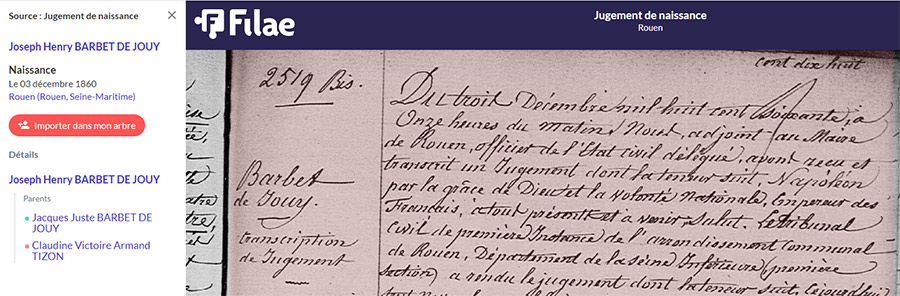 Source : Jugement de naissance
Joseph Henry BARBET DE JOUY
Naissance
Le 03 décembre 1860
Rouen (Rouen, Seine-Maritime)
Importer dans mon arbre
Détails
Joseph Henry BARBET DE JOUY
Parents
Jacques Juste BARBET DE
JOUY
Claudine Victoire Armand
TIZON
Filae
Jugement de naissance
Rouen
cent dix huit
2519 Bis.
Barbet
de Jouy.
transcription
de Jugement
Du trois Décembre mil huit cent soixante, à
Onze heures du matin, Nous, adjoint au Maire
de Rouen, officier de l'Etat civil délégué, avons reçu et
transcrit un Jugement dont la teneur suit, Napoléon
par la grâce de Dieu et la volonté Nationale, Empereur des
Français, à tous présents et à venir, Salut. Le tribunal
civil de première Instance de l'arrondissement communal
de Rouen, Département de la Seine Inférieure (première
section) a rendu le jugement dont la teneur suit, Cejourd'hui